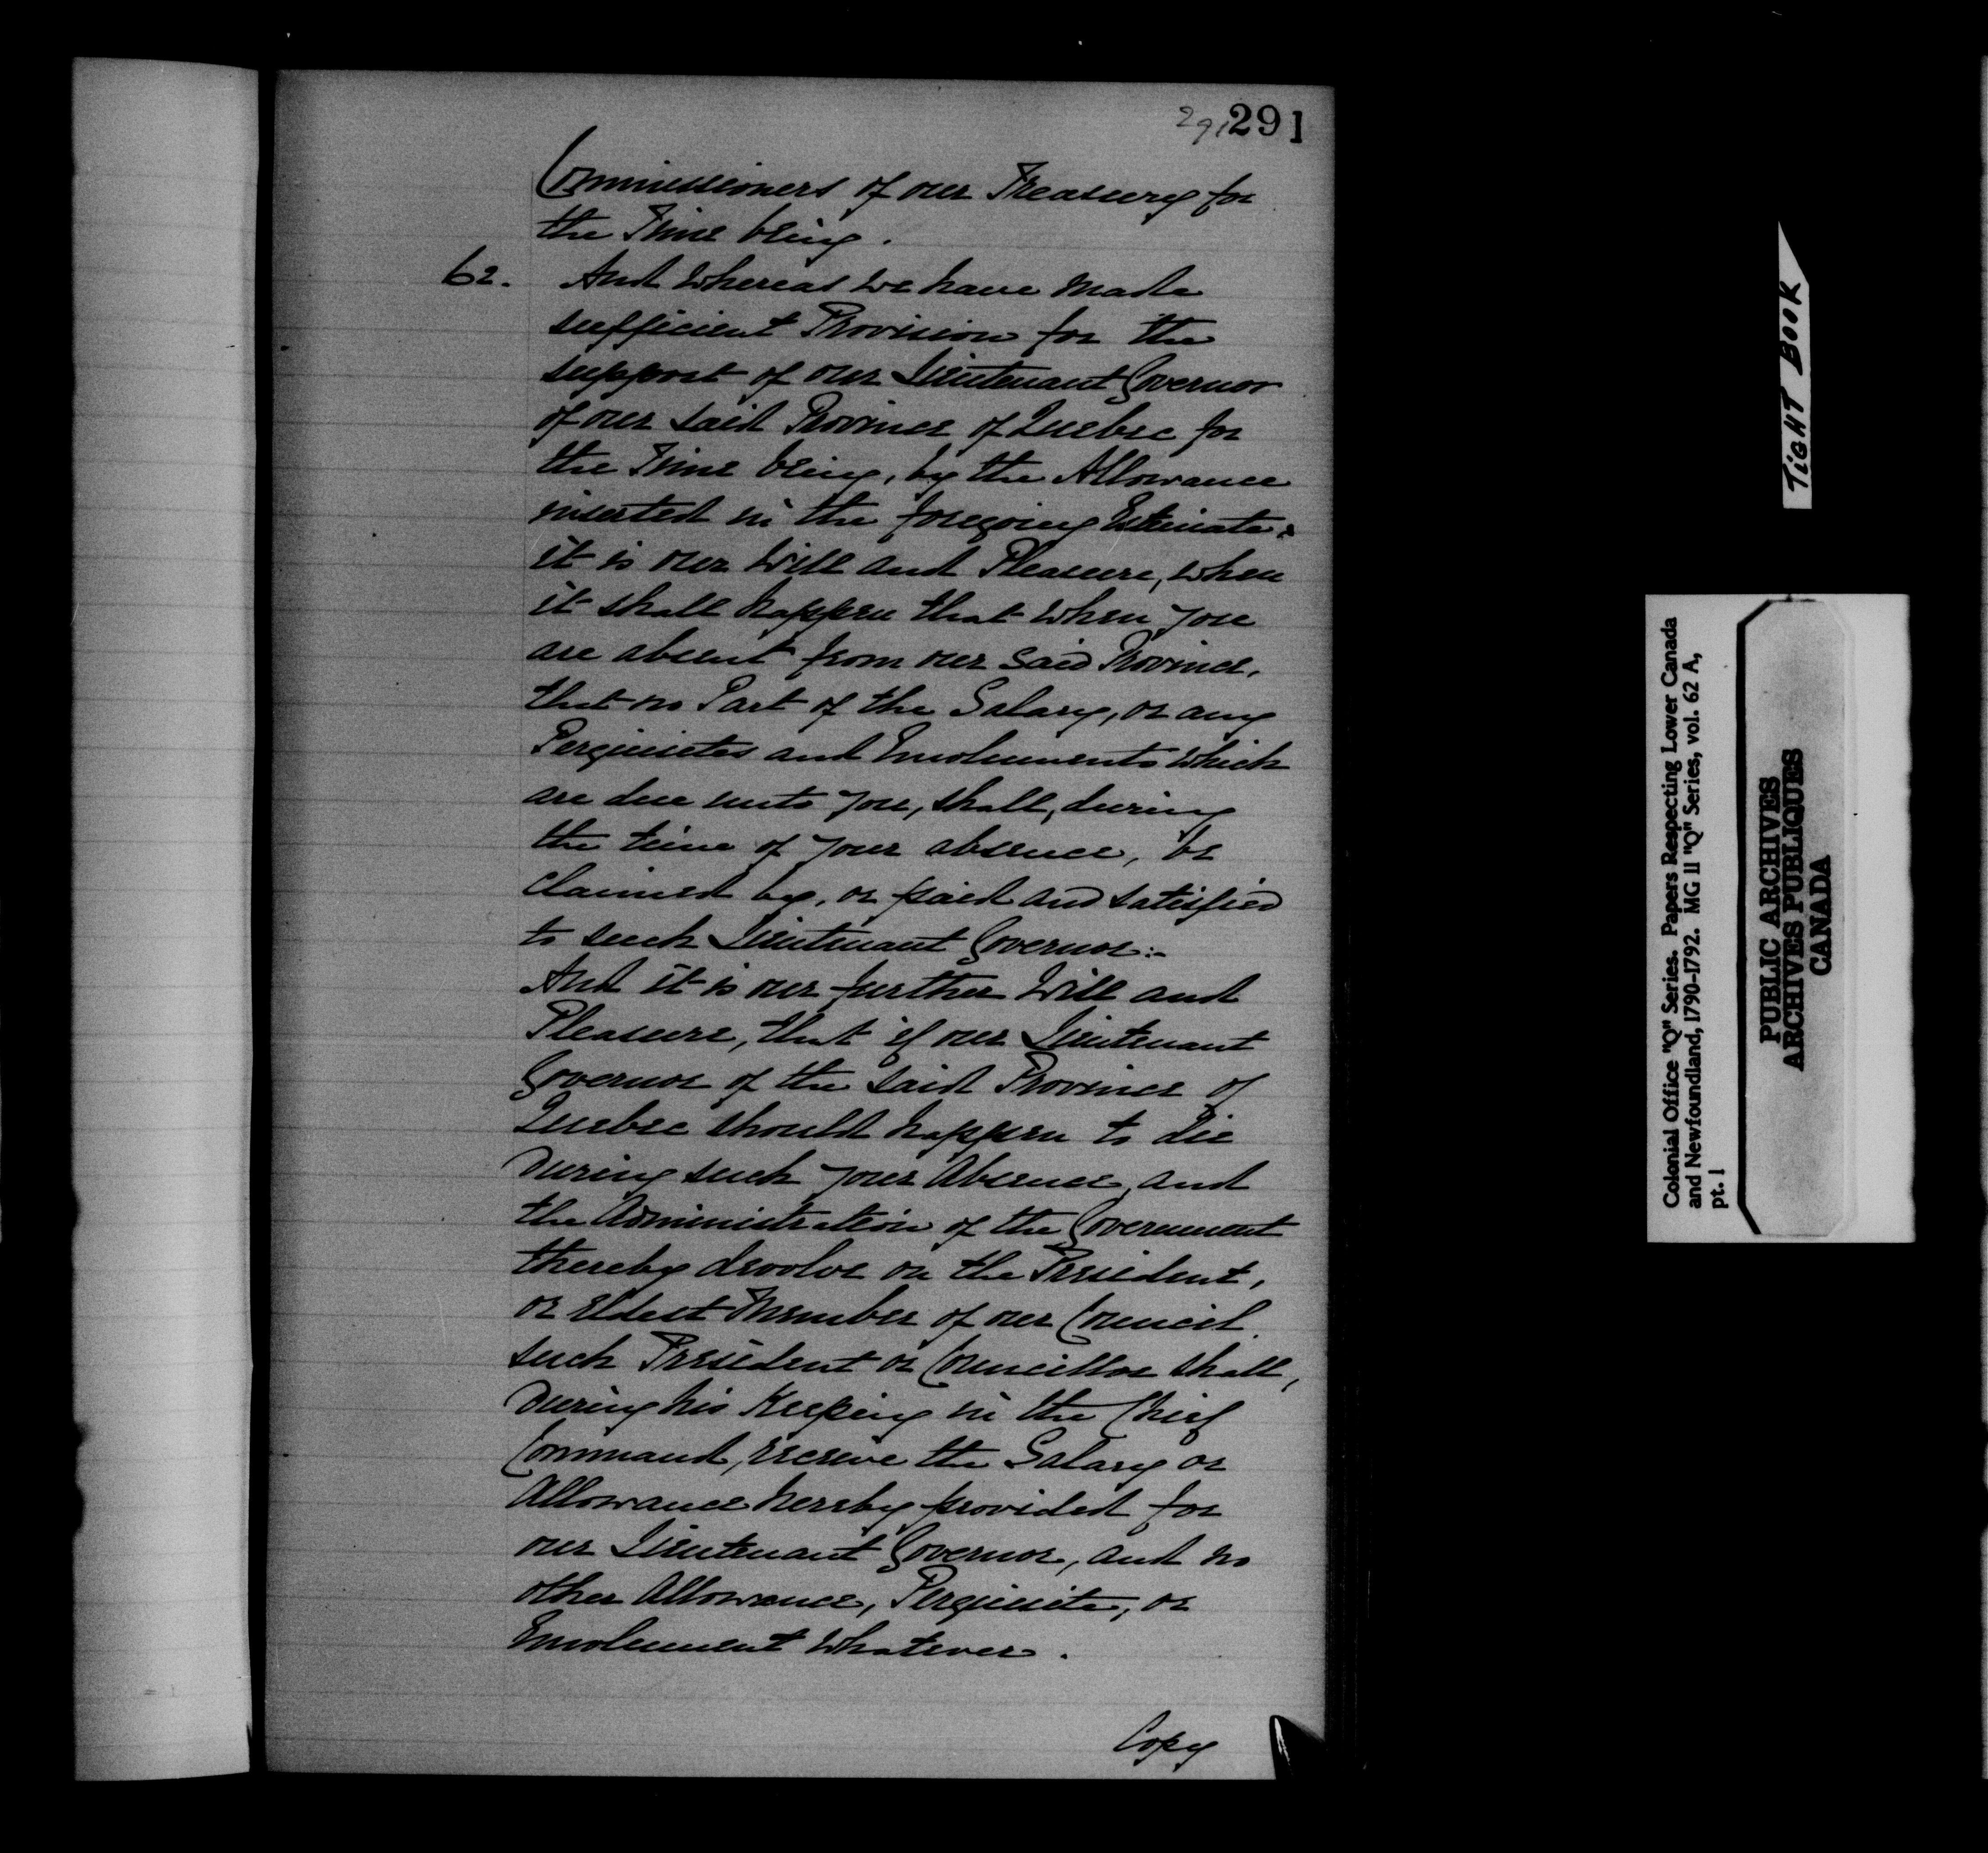 291 291
Commissioners of our Treasury for
the Time being.
62. And whereas we have made
sufficient Provision for the
support of our Lieutenant Governor
of our said Province of Quebec for
the Time being, by the Allowance
inserted in the foregoing Estimate,
it is our Will and Pleasure, when
it shall happen that when you
are absent from our said Province,
that no Part of the Salary, or any
Perquisites and Emoluments which
are due unto you, shall, during
the time of your absence, be
claimed by, or paid and satisfied
to such Lieutenant Governor:-
And it is our further Will and
Pleasure, that if our Lieutenant
Governor of the said Province of
Quebec should happen to die
during such your Absence, and
the Administration of the Government
thereby devolve on the President,
or eldest Member of our Council,
such President or Councillor shall,
during his Keeping in the Chief
Command, receive the Salary or
Allowance hereby provided for
our Lieutenant Governor, and no
other Allowance, Perquisite, or
Emolument whatever.
Copy
TIGHT BOOK
Colonial Office "Q" Series. Papers Respecting Lower Canada
and Newfoundland, 1790-1792. MG 11 "Q" Series, vol. 62 A,
pt. 1
PUBLIC ARCHIVES
ARCHIVES PUBLIQUES
CANADA